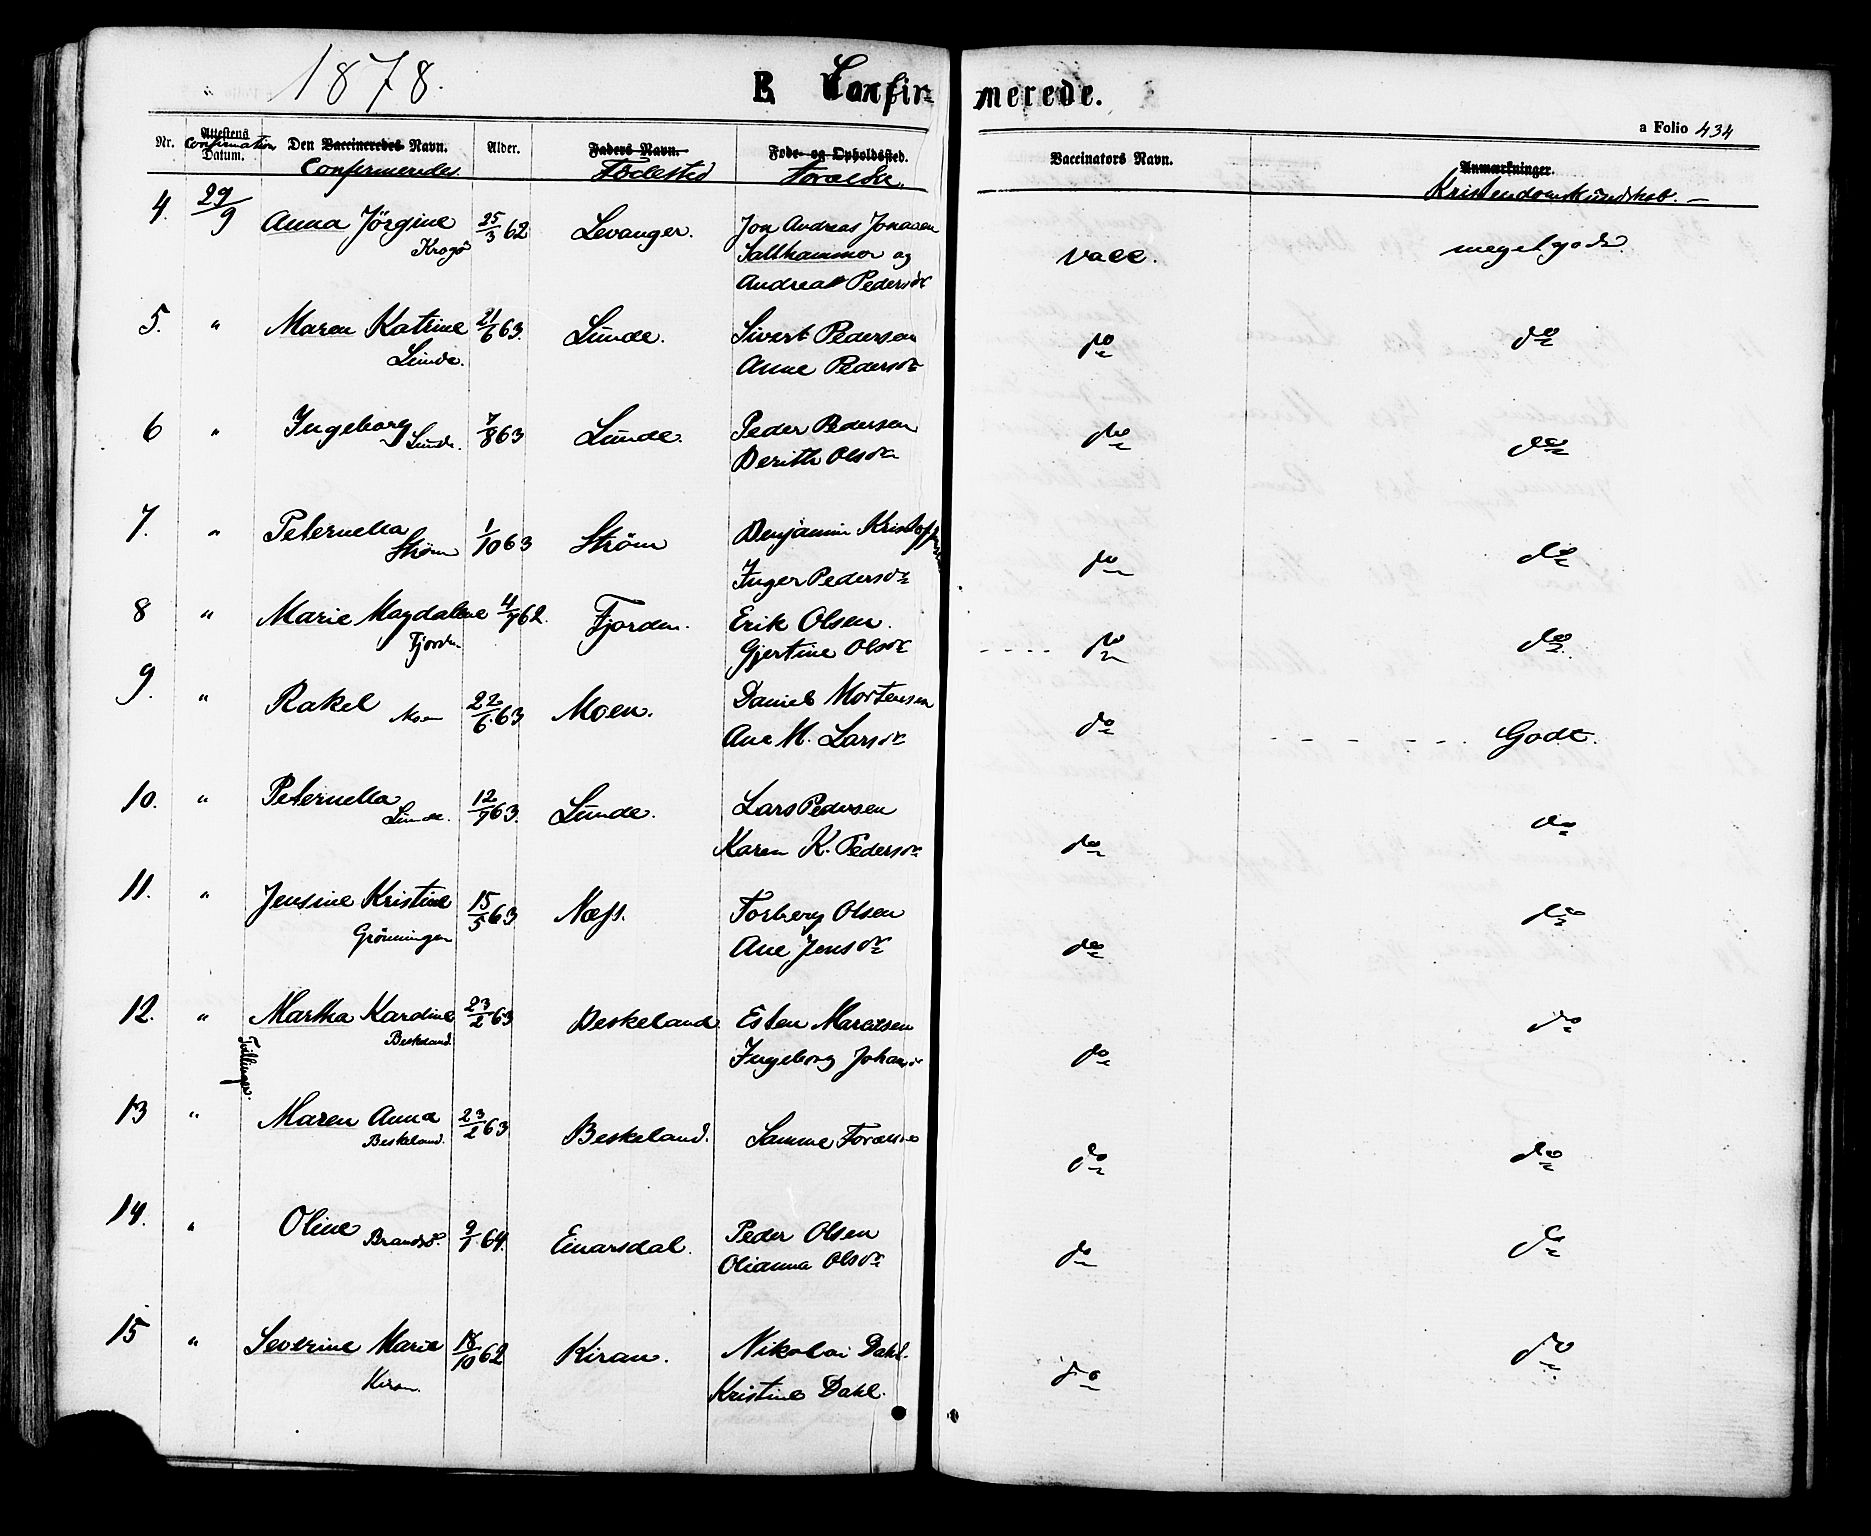 1878.
B Confirmerede.
a Folio 434
Nr. Attestens Confirmation Datum. Den Vaccineredes Navn. Confirmeredes Alder. Faders Navn. Fødested Føde- og Opholdssted. Forældre Vaccinators Navn. Anmærkninger. Kristendomskundskab.
4. 29/9 Anna Jörgine 25/3 62 Levanger. Jon Andreas Jonasen vacc. meget godt
Krogö Salthammer og
Andrea Pedersdr
5. " Maren Katrine 21/6 63. Lunde. Sivert Pedersen do do
Lunde. Anne Pedersdr
6 " Ingeborg 7/8 63 Lunde. Peder Pedersen do do
Lunde. Berith Olsdr
7. " Peternella 1/10 63 Strøm Benjamin Kristoffersen do do
Strøm Inger Pedersdr
8 " Marie Magdalene 4/7 62. Fjorden. Erik Olsen. do do
Fjorden. Gjertine Olsdr
9. " Rakel 22/6 63 Moen. Daniel Mortensen do Godt.
Moen Ane M. Larsdr
10. " Peternella 12/9 63. Lunde. Lars Pedersen do do
Lunde. Karen K. Pedersdr
11. " Jensine Kristine 15/5 63 Næss. Torberg Olsen do do
Grönningen Ane Jensdr
12. " Martha Kardine 23/2 63 Beskeland Esten Marcusen do do
Beskeland. Ingeborg Johansdr
Tvillinger.
13 " Maren Anna 23/2 63 Beskeland. Samme Forældre do do
Beskeland.
14. " Oline 9/1 64. Einarsdal. Peder Olsen do do
Brandsö. Olianna Olsdr
15 " Severine Marie 18/10 62 Kiran. Nikolai Dahl. do do
Kiran. Kristine Dahl.